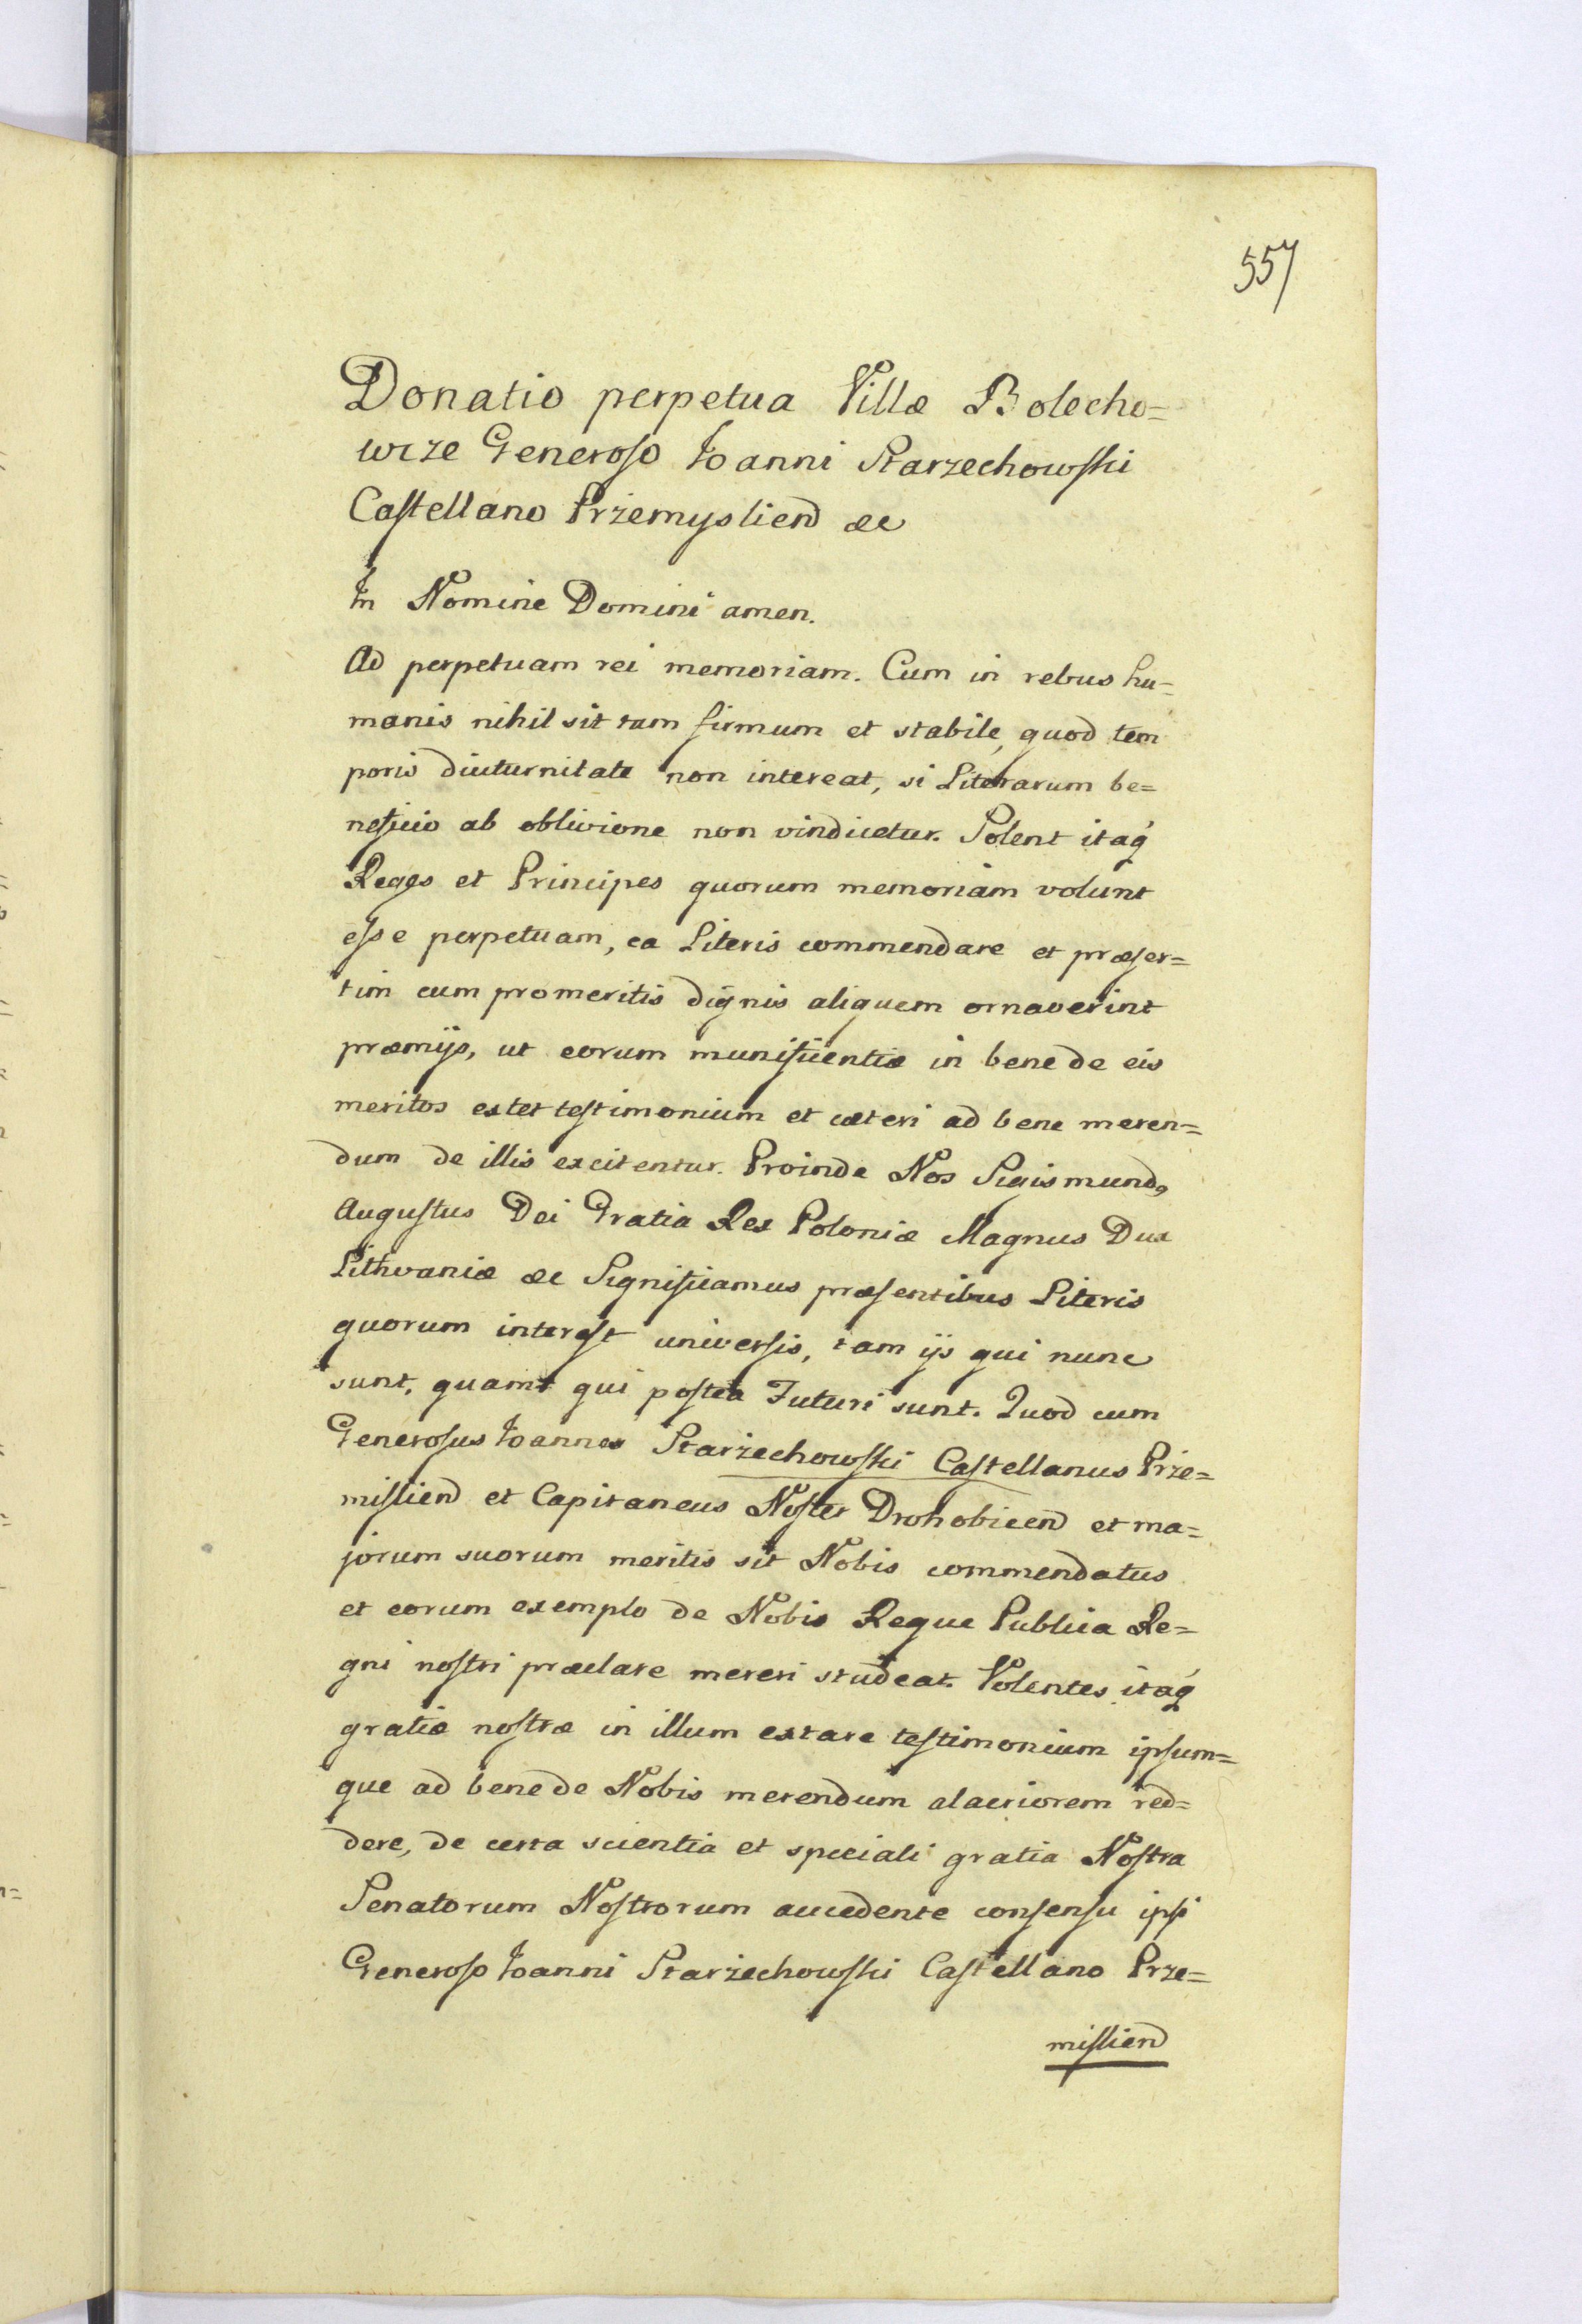 557
Donatio perpetua Villæ Bolecho=
wcze Generoso Joanni Starzechowski
Castellano Przemysliend &c
In Nomine Domini amen.
Ad perpetuam rei memoriam. Cum in rebus hu=
manis nihil sit tam firmum et stabile, quod tem
poris diuturnitate non intereat, si Literarum be=
neficio ab oblivione non vindicetur. Solent itaq́
Reges et Principes quorum memoriam volunt
esse perpetuam, ea Literis commendare et præser=
tim cum promeritis dignis aliquem ornaverint
præmijs, ut eorum munificentiæ in bene de eis
meritos extet testimonium et cæteri ad bene meren=
dum de illis excitentur. Proinde Nos Sigismund9
Augustus Dei Gratia Rex Poloniæ Magnus Dux
Lithvaniæ &c Significamus præsentibus Literis
quorum interest universis, tam ijs qui nunc
sunt, quamt qui postea Futuri sunt. Quod cum
Generosus Joannes Starzechowski Castellanus Prze=
misliend et Capitaneus Noster Drohobicend et ma=
jorum suorum meritis sit Nobis commendatus
et eorum exemplo de Nobis Reque Publica Re=
gni nostri præclare mereri studeat. Volentes itaq́
gratiæ nostræ in illum extare testimonium ipsum=
que ad bene de Nobis merendum alacriorem red=
dere, de certa scientia et speciali gratia Nostra
Senatorum Nostrorum accedente consensu ipsi
Generoso Joanni Starzechowski Castellano Prze=
misliend